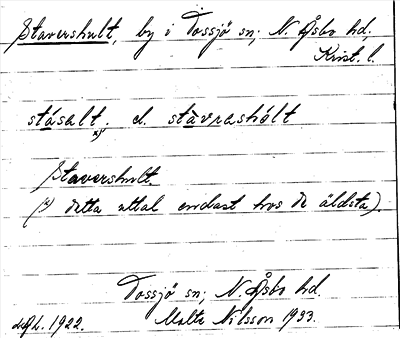 Stavershult, by i Tossjö sn; N. Åsbo hd,
Krist. l.
stásalt x); el. stàvrashólt
Stavershult.
(x) detta uttal endast hos de äldsta).
Tossjö sn; N Åsbo hd.
1922. Malte Nilsson 1933.